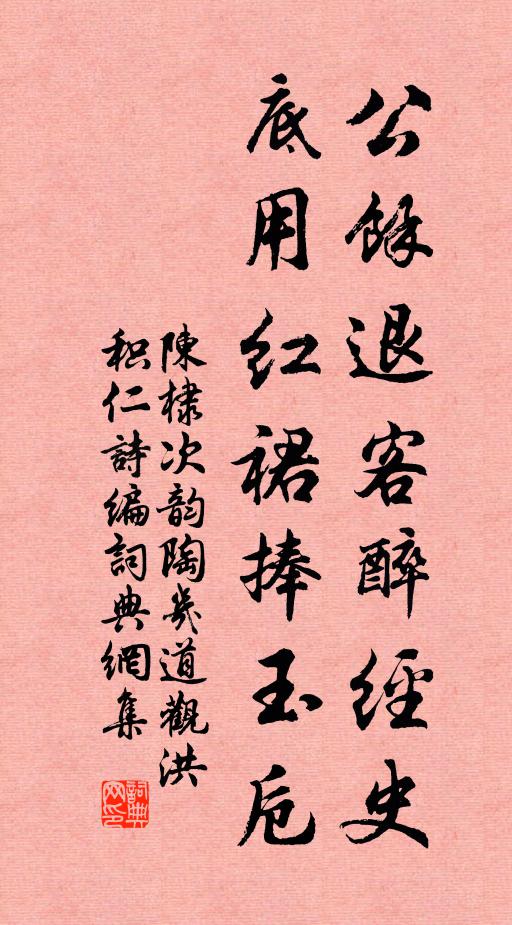 公餘退客醉經史
底用红裙捧玉卮
陳棣次韵陶幾道觀洪
积仁詩编詞典網集
詞典
网印